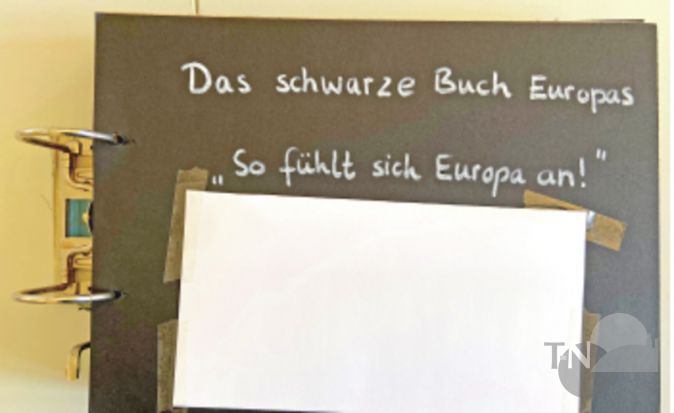 Das schwarze Buch Europas
„So fühlt sich Europa an!"
T+N